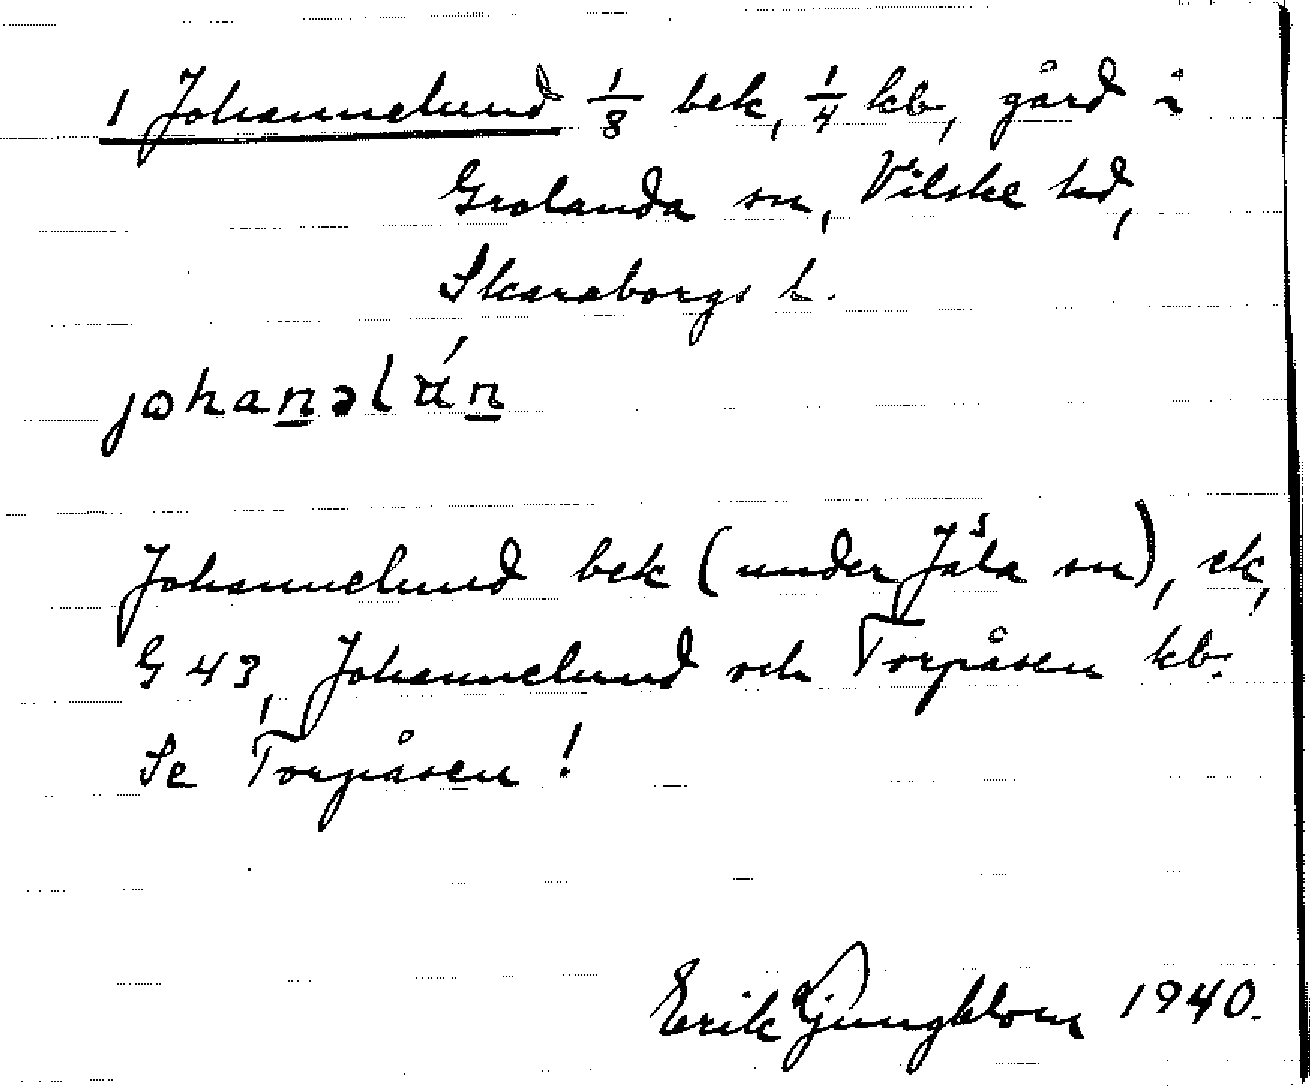 1 Johannelund 1/8 bek, 1/4 kb, gård i
Grolanda sn, Vilske hd,
Skaraborgs l.
johanəlún
Johannelund bek (under Jäla sn), ek,
G 43, Johannelund och Torpåsen kb.
Se Torpåsen !
Erik Ljungblom 1940.